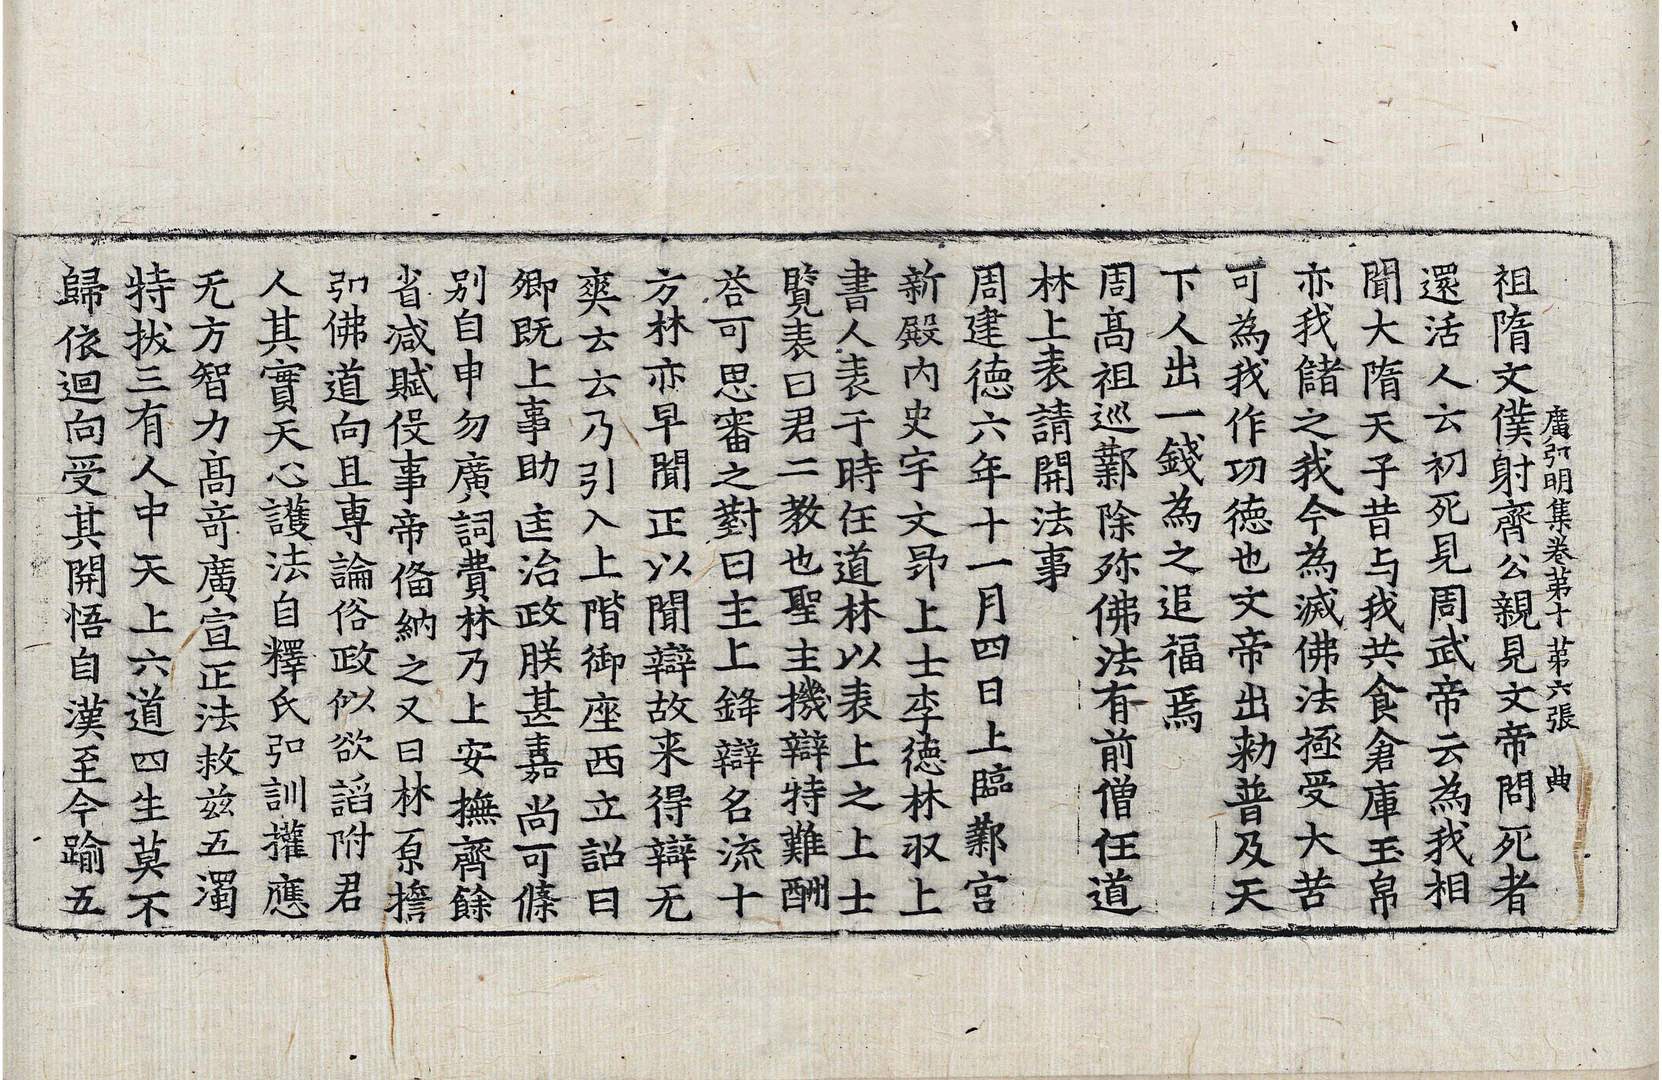 廣弘明集卷第十 第六張 典
祖隋文僕射齊公親見文帝問死者
還活人云初死見周武帝云為我相
聞大隋天子昔与我共食倉庫玉帛
亦我儲之我今為滅佛法極受大苦
可為我作功德也文帝出勑普及天
下人出一錢為之追福焉
周髙祖巡鄴除殄佛法有前僧任道
林上表請開法事
周建德六年十一月四日上臨鄴宮
新殿內史宇文昂上士李德林収上
書人表于時任道林以表上之上士
覽表曰君二教也聖主機辯特難酬
荅可思審之對曰主上鋒辯名流十
方林亦早聞正以聞辯故来得辯无
爽云云乃引入上階御座西立詔曰
卿既上事助匡治政朕甚嘉尚可條
别自申勿廣詞費林乃上安撫齊餘
省减賦役事帝俻納之又曰林原擔
弘佛道向且專論俗政似欲謟附君
人其實天心護法自釋氏弘訓攉應
无方智力髙奇廣宣正法救兹五濁
特拔三有人中天上六道四生莫不
歸依迴向受其開悟自漢至今踰五